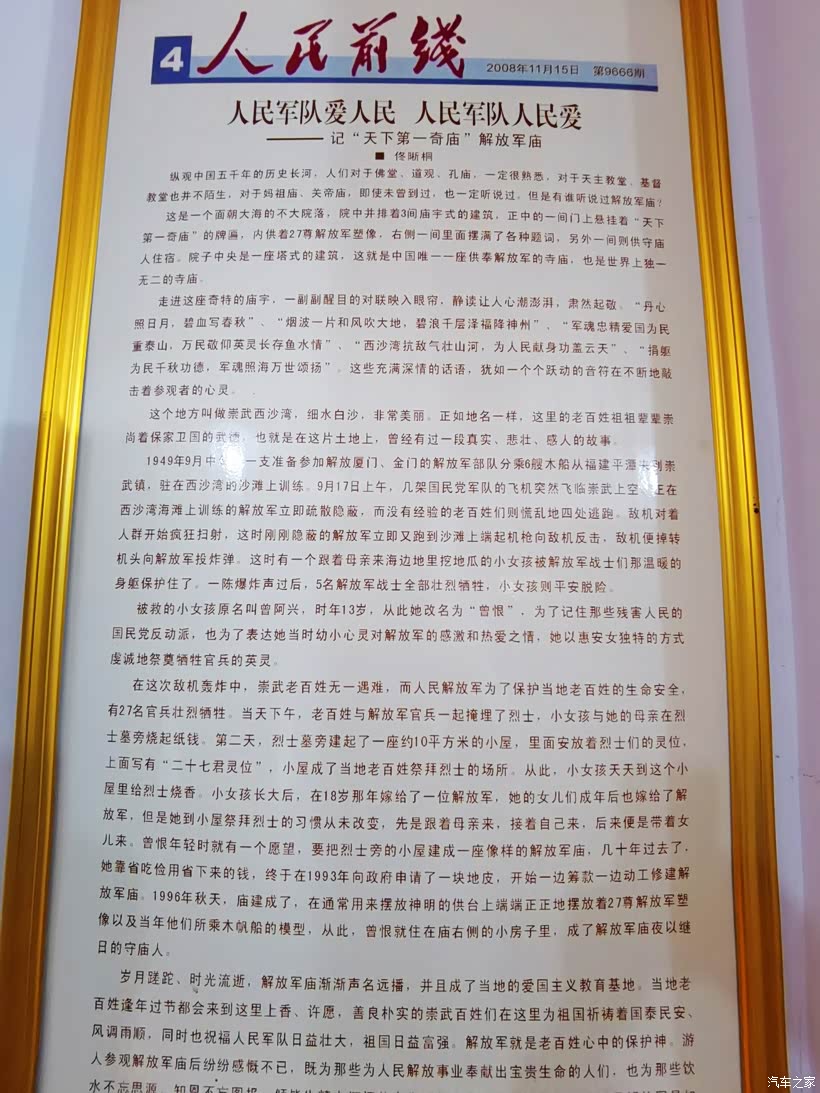 4 人民前线 2008年11月15日 第9666期
人民军队爱人民 人民军队人民爱
——记“天下第一奇庙”解放军庙
■ 佟晰桐
纵观中国五千年的历史长河，人们对于佛堂、道观、孔庙，一定很熟悉，对于天主教堂、基督
教堂也并不陌生，对于妈祖庙、关帝庙，即使未曾到过，也一定听说过。但是有谁听说过解放军庙？
这是一个面朝大海的不大院落，院中并排着3间庙宇式的建筑，正中的一间门上悬挂着“天下
第一奇庙”的牌匾，内供着27尊解放军塑像，右侧一间里面摆满了各种题词，另外一间则供守庙
人住宿。院子中央是一座塔式的建筑，这就是中国唯一一座供奉解放军的寺庙，也是世界上独一
无二的寺庙。
走进这座奇特的庙宇，一副副醒目的对联映入眼帘，静读让人心潮澎湃，肃然起敬。“丹心
照日月，碧血写春秋”、“烟波一片和风吹大地，碧浪千层泽福降神州”、“军魂忠精爱国为民
重泰山，万民敬仰英灵长存鱼水情”、“西沙湾抗敌气壮山河，为人民献身功盖云天”、“捐躯
为民千秋功德，军魂照海万世颂扬”。这些充满深情的话语，犹如一个个跃动的音符在不断地敲
击着参观者的心灵。
这个地方叫做崇武西沙湾，细水白沙，非常美丽。正如地名一样，这里的老百姓祖祖辈辈崇
尚着保家卫国的武德，也就是在这片土地上，曾经有过一段真实、悲壮、感人的故事。
1949年9月中 一支准备参加解放厦门、金门的解放军部队分乘6艘木船从福建平潭 到崇
武镇，驻在西沙湾的沙滩上训练。9月17日上午，几架国民党军队的飞机突然飞临崇武上空 正在
西沙湾海滩上训练的解放军立即疏散隐蔽，而没有经验的老百姓们则慌乱地四处逃跑。敌机对着
人群开始疯狂扫射，这时刚刚隐蔽的解放军立即又跑到沙滩上端起机枪向敌机反击，敌机便掉转
机头向解放军投炸弹。这时有一个跟着母亲来海边地里挖地瓜的小女孩被解放军战士们那温暖的
身躯保护住了。一陈爆炸声过后，5名解放军战士全部壮烈牺牲，小女孩则平安脱险。
被救的小女孩原名叫曾阿兴，时年13岁，从此她改名为“曾恨”，为了记住那些残害人民的
国民党反动派，也为了表达她当时幼小心灵对解放军的感激和热爱之情，她以惠安女独特的方式
虔诚地祭奠牺牲官兵的英灵。
在这次敌机轰炸中，崇武老百姓无一遇难，而人民解放军为了保护当地老百姓的生命安全，
有27名官兵壮烈牺牲。当天下午，老百姓与解放军官兵一起掩埋了烈士，小女孩与她的母亲在烈
士墓旁烧起纸钱。第二天，烈士墓旁建起了一座约10平方米的小屋，里面安放着烈士们的灵位，
上面写有“二十七君灵位”，小屋成了当地老百姓祭拜烈士的场所。从此，小女孩天天到这个小
屋里给烈士烧香。小女孩长大后，在18岁那年嫁给了一位解放军，她的女儿们成年后也嫁给了解
放军，但是她到小屋祭拜烈士的习惯从未改变，先是跟着母亲来，接着自己来，后来便是带着女
儿来。曾恨年轻时就有一个愿望，要把烈士旁的小屋建成一座像样的解放军庙，几十年过去了，
她靠省吃俭用省下来的钱，终于在1993年向政府申请了一块地皮，开始一边筹款一边动工修建解
放军庙。1996年秋天，庙建成了，在通常用来摆放神明的供台上端端正正地摆放着27尊解放军塑
像以及当年他们所乘木帆船的模型，从此，曾恨就住在庙右侧的小房子里，成了解放军庙夜以继
日的守庙人。
岁月蹉跎、时光流逝，解放军庙渐渐声名远播，并且成了当地的爱国主义教育基地。当地老
百姓逢年过节都会来到这里上香、许愿，善良朴实的崇武百姓们在这里为祖国祈祷着国泰民安、
风调雨顺，同时也祝福人民军队日益壮大，祖国日益富强。解放军就是老百姓心中的保护神。游
人参观解放军庙后纷纷感慨不已，既为那些为人民解放事业奉献出宝贵生命的人们，也为那些饮
水不忘思源、知恩不忘图报
汽车之家